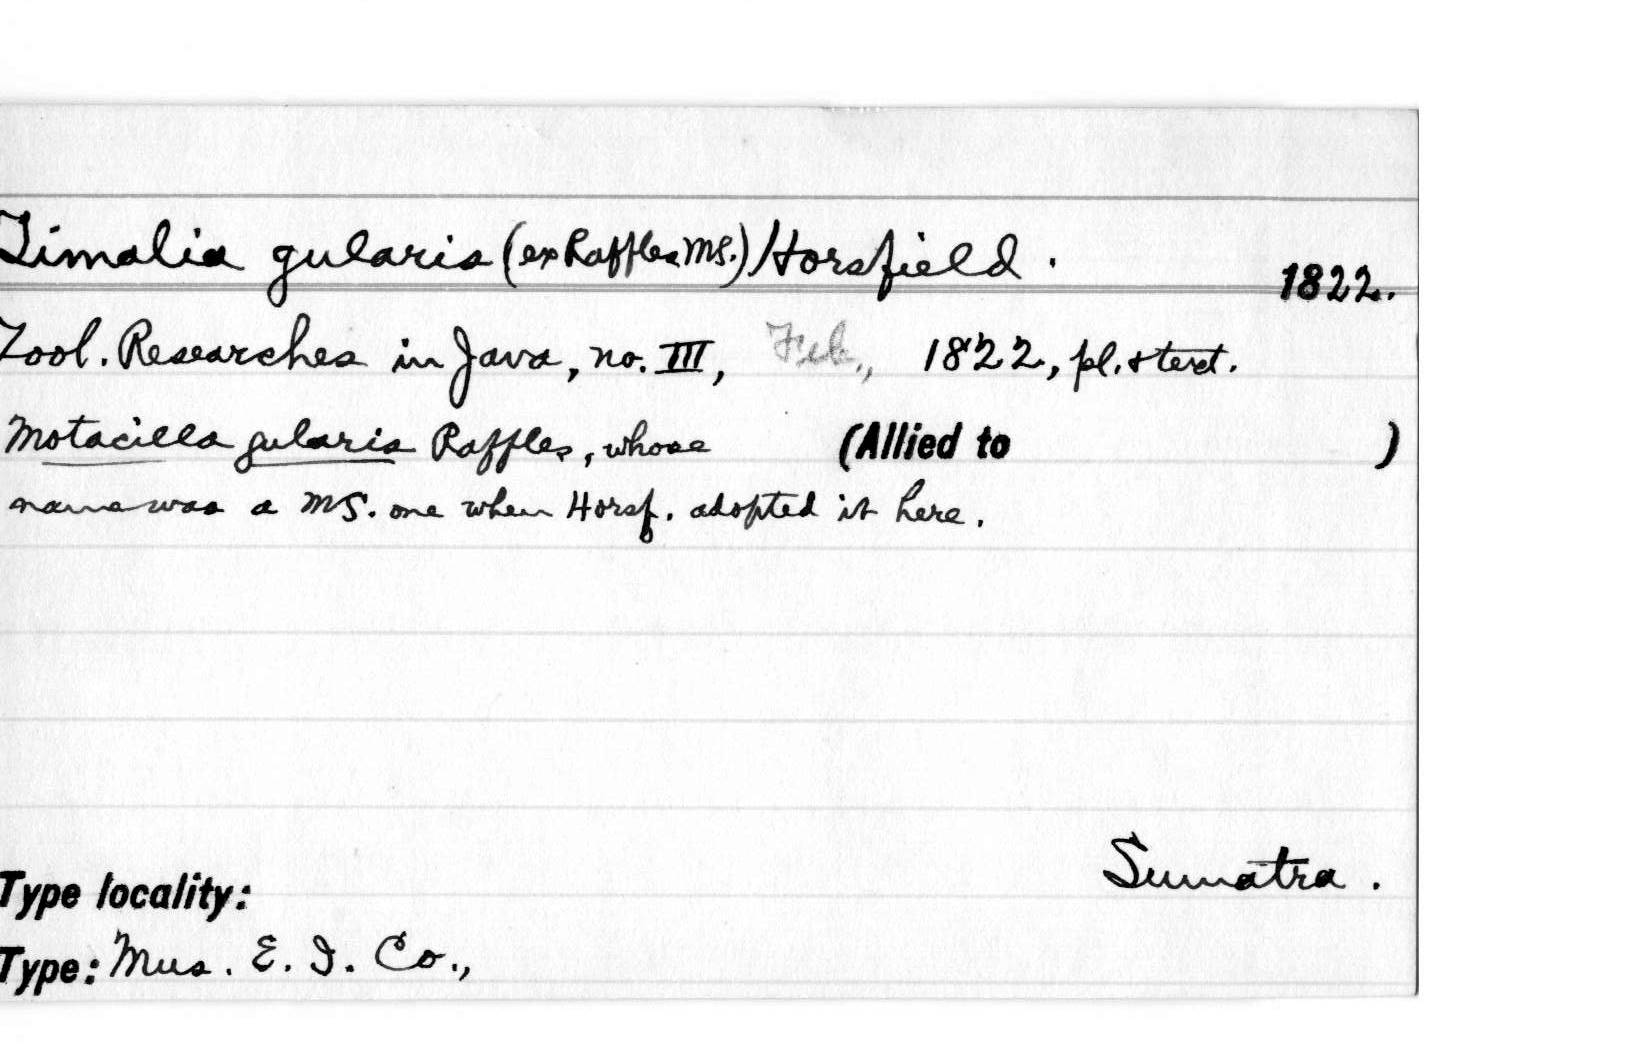 Timalia gularis (ex Raffles MS.) Horsfield. 1822.
Zool. Researches in Java, no. III, Feb., 1822, pl. & text.
Motacilla gularis Raffles, whose (Allied to )
name was a MS. one when Horsf. adopted it here.
Sumatra.
Type locality:
Type: Mus. E. I. Co.,